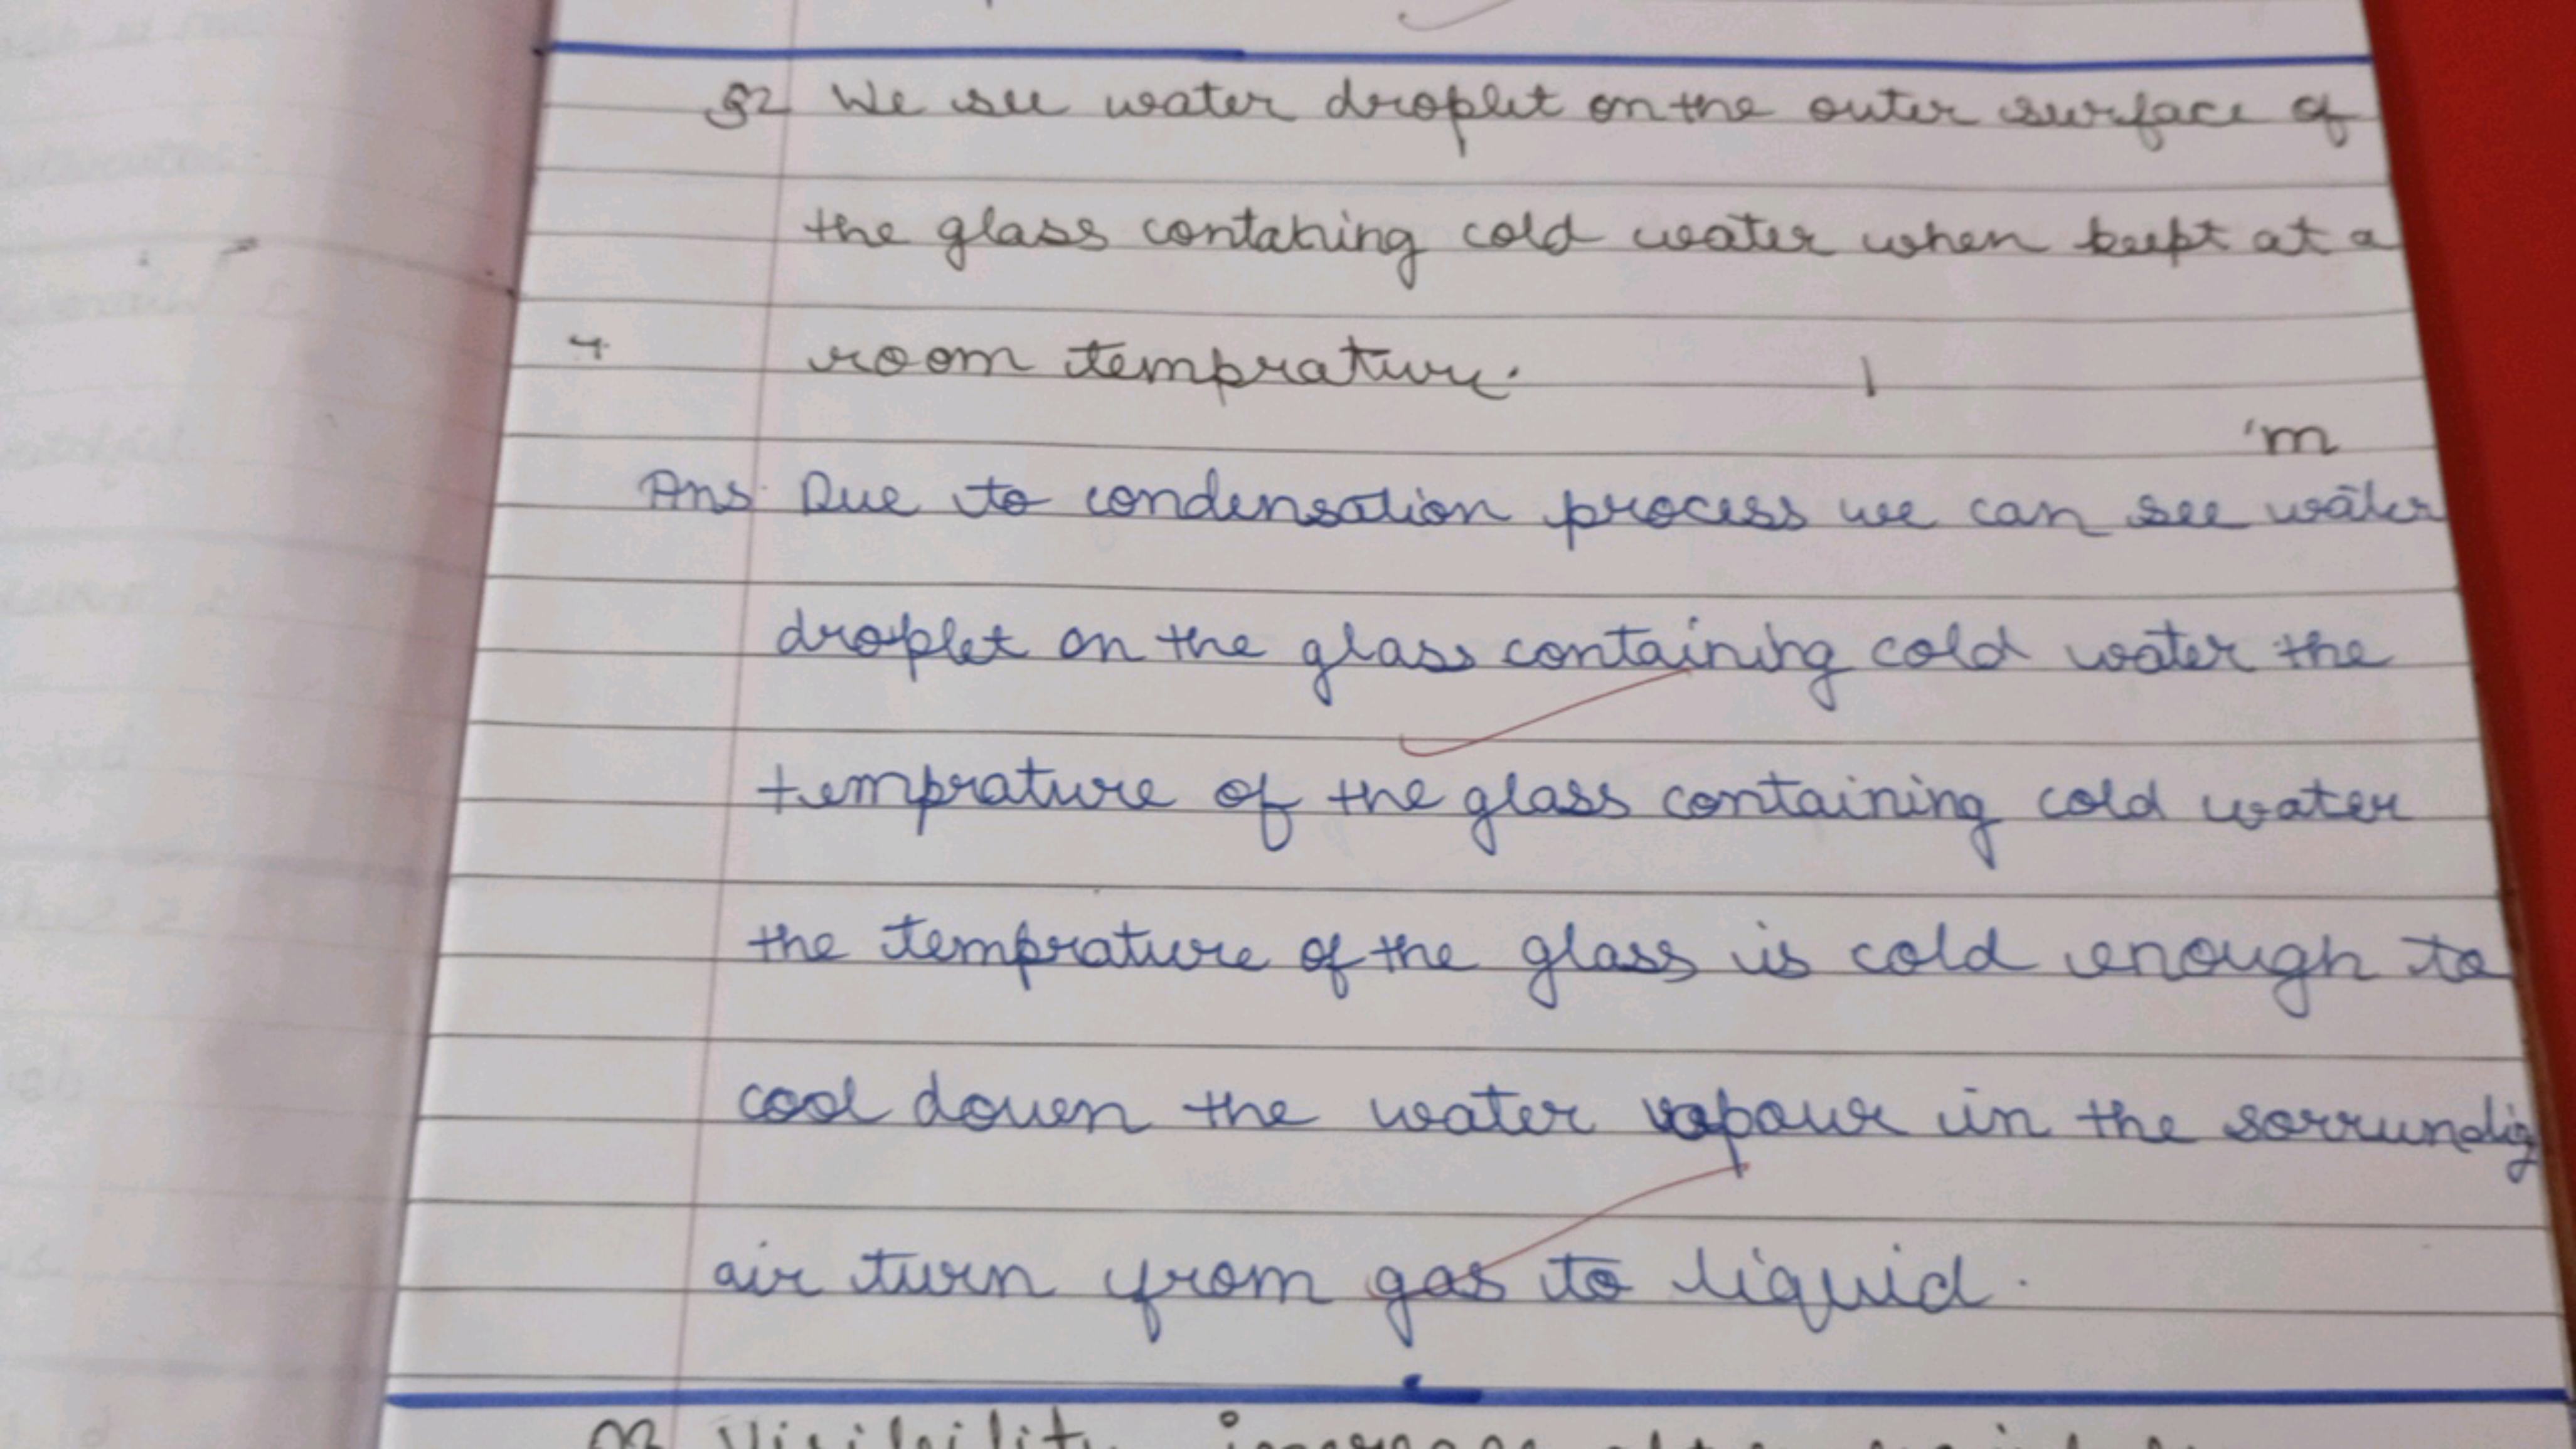 Q2 We see water droplet on the outer surface of
the glass containing cold water when kept at a
room temprature.
Ans Due to condensation process we can see water
droplet on the glass containing cold water the
temprature of the glass containing cold water
the temprature of the glass is cold enough to
cool down the water vapour in the sorrundig
air turn from gas to liquid.
Q3 Visibility increases after